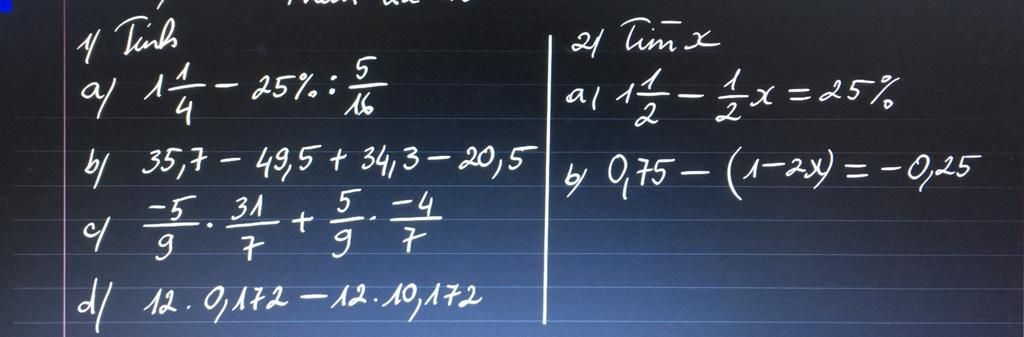 1/ Tính
a/ 1 1/4 − 25% : 5/16
b/ 35,7 − 49,5 + 34,3 − 20,5
c/ -5/9 . 31/7 + 5/9 . -4/7
d/ 12 . 0,172 − 12 . 10,172
2/ Tìm x
a/ 1 1/2 − 1/2 x = 25%
b/ 0,75 − (1−2x) = −0,25